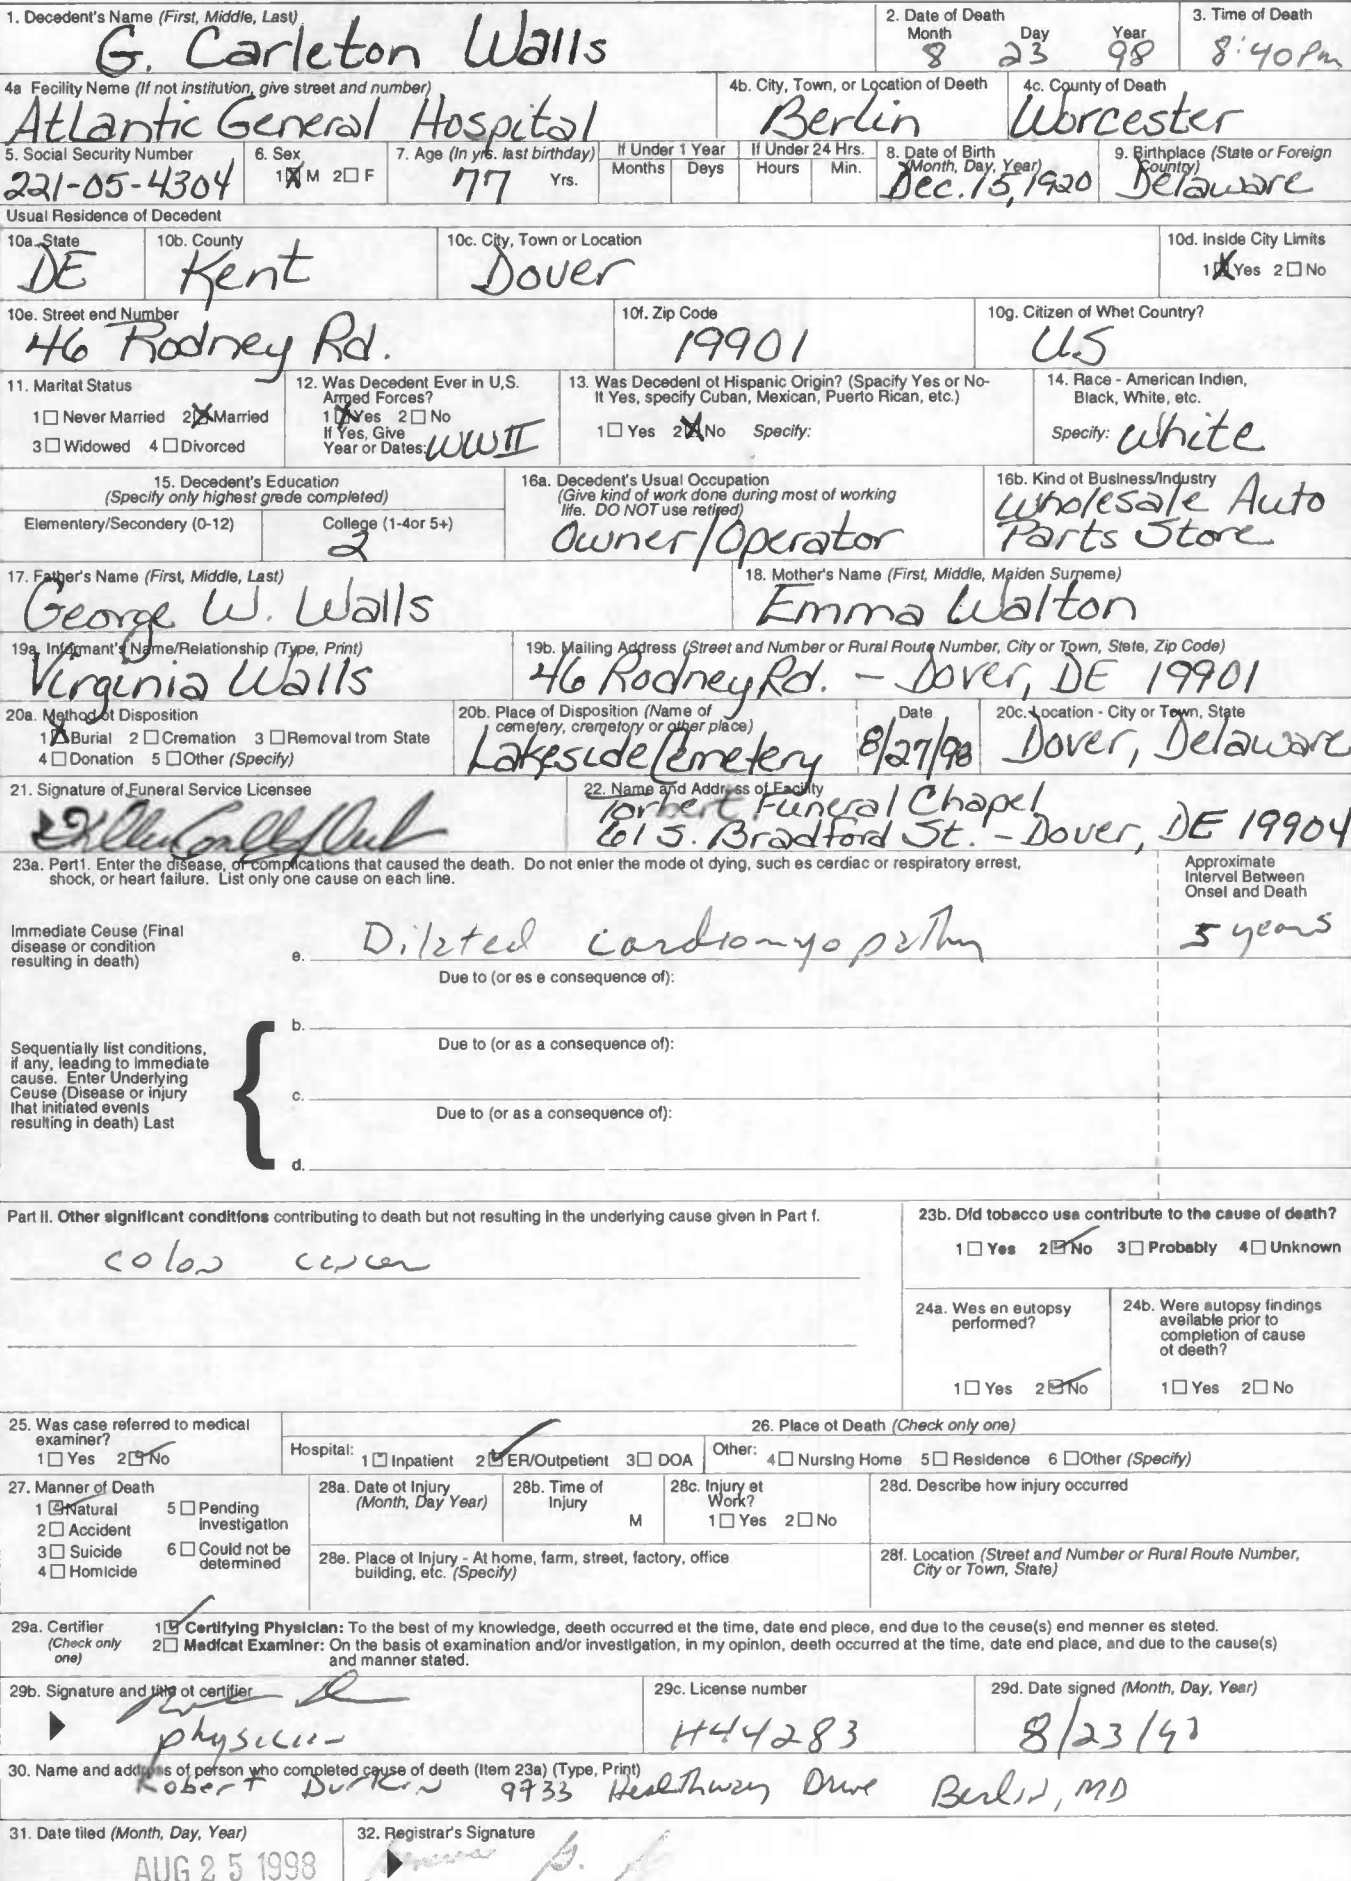 1. Decedent's Name (First, Middle, Last)
G. Carleton Walls
2. Date of Death
Month Day Year
8 23 98
3. Time of Death
8:40 Pm
4a Fecility Neme (If not institution, give street and number)
Atlantic General Hospital
4b. City, Town, or Location of Deeth
Berlin
4c. County of Death
Worcester
5. Social Security Number
221-05-4304
6. Sex
1☒ M 2☐ F
7. Age (In yrs. last birthday)
77 Yrs.
If Under 1 Year
Months Deys
If Under 24 Hrs.
Hours Min.
8. Date of Birth
(Month, Day, Year)
Dec. 15, 1920
9. Birthplace (State or Foreign
Country)
Delaware
Usual Residence of Decedent
10a. State
DE
10b. County
Kent
10c. City, Town or Location
Dover
10d. Inside City Limits
1☒ Yes 2☐ No
10e. Street end Number
46 Rodney Rd.
10f. Zip Code
19901
10g. Citizen of Whet Country?
US
11. Maritat Status
1☐ Never Married 2☒ Married
3☐ Widowed 4☐ Divorced
12. Was Decedent Ever in U,S.
Armed Forces?
1☒ Yes 2☐ No
If Yes, Give
Year or Dates: WWII
13. Was Decedenl ot Hispanic Origin? (Specify Yes or No-
It Yes, specify Cuban, Mexican, Puerto Rican, etc.)
1☐ Yes 2☒ No Specify:
14. Race - American Indien,
Black, White, etc.
Specify: white
15. Decedent's Education
(Specify only highest grede completed)
Elementery/Secondery (0-12)
College (1-4or 5+)
2
16a. Decedent's Usual Occupation
(Give kind of work done during most of working
life. DO NOT use retired)
Owner/Operator
16b. Kind ot Business/Industry
Wholesale Auto
Parts Store
17. Father's Name (First, Middle, Last)
George W. Walls
18. Mother's Name (First, Middle, Maiden Surneme)
Emma Walton
19a. Informant's Name/Relationship (Type, Print)
Virginia Walls
19b. Mailing Address (Street and Number or Rural Route Number, City or Town, Stete, Zip Code)
46 Rodney Rd. - Dover, DE 19901
20a. Method ot Disposition
1☒ Burial 2 ☐ Cremation 3 ☐ Removal trom State
4 ☐ Donation 5 ☐ Other (Specify)
20b. Place of Disposition (Name of
cemetery, cremetory or other place)
Lakeside Cemetery
Date
8/27/98
20c. Location - City or Town, State
Dover, Delaware
21. Signature of Funeral Service Licensee
22. Name and Address of Facility
Torbert Funeral Chapel
61 S. Bradford St. - Dover, DE 19904
23a. Pert1. Enter the disease, or complications that caused the death. Do not enler the mode ot dying, such es cerdiac or respiratory errest,
shock, or heart failure. List only one cause on each line.
Approximate
Intervel Between
Onsel and Death
Immediate Ceuse (Final
disease or condition
resulting in death)
e. Dilated cardiomyopathy
5 years
Due to (or es e consequence of):
b.
Sequentially list conditions,
if any, leading to immediate
cause. Enter Underlying
Ceuse (Disease or injury
lhat initiated evenls
resulting in death) Last
Due to (or as a consequence of):
c.
Due to (or as a consequence of):
d.
Part II. Other significant conditions contributing to death but not resulting in the underlying cause given in Part f.
colon cancer
23b. Dfd tobacco usa contribute to the cause of death?
1☐ Yes 2☑ No 3☐ Probably 4☐ Unknown
24a. Wes en eutopsy
performed?
1☐ Yes 2☑ No
24b. Were autopsy findings
aveilable prior to
completion of cause
ot deeth?
1☐ Yes 2☐ No
25. Was case referred to medical
examiner?
1☐ Yes 2☑ No
26. Place ot Death (Check only one)
Hospital: 1☐ Inpatient 2☑ ER/Outpetient 3☐ DOA
Other: 4☐ Nursing Home 5☐ Residence 6 ☐ Other (Specify)
27. Manner of Death
1 ☑ Natural
2☐ Accident
3☐ Suicide
4☐ Homicide
5☐ Pending
investigation
6☐ Could not be
determined
28a. Date ot Injury
(Month, Day Year)
28b. Time of
Injury
M
28c. Injury et
Work?
1☐ Yes 2☐ No
28d. Describe how injury occurred
28e. Place ot Injury - At home, farm, street, factory, office
building, etc. (Specify)
28f. Location (Street and Number or Rural Route Number,
City or Town, State)
29a. Certifier
(Check only
one)
1☑ Certifying Physician: To the best of my knowledge, deeth occurred et the time, date end plece, end due to the ceuse(s) end menner es steted.
2☐ Madfcat Examiner: On the basis ot examination and/or investigation, in my opinlon, deeth occurred at the time, date end place, and due to the cause(s)
and manner stated.
29b. Signature and title ot certifier
physician
29c. License number
H44283
29d. Date signed (Month, Day, Year)
8/23/98
30. Name and address of person who completed cause of deeth (Item 23a) (Type, Print)
Robert Durkin 9733 Healthway Drive Berlin, MD
31. Date tiled (Month, Day, Year)
AUG 25 1998
32. Registrar's Signature